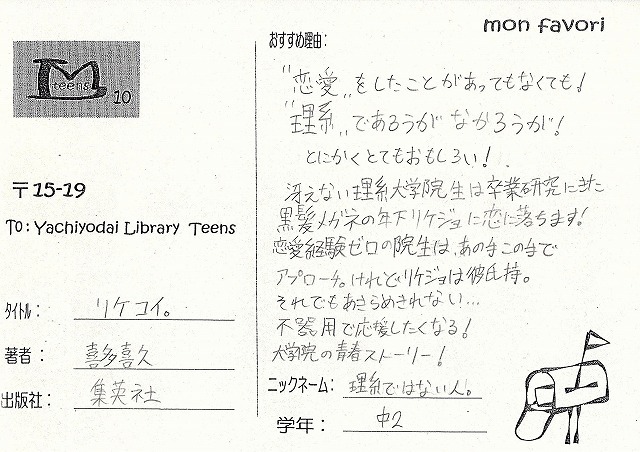 mon favori
teens
10
〒15-19
To: Yachiyodai Library Teens
タイトル： リケコイ。
著者： 喜多喜久
出版社： 集英社
おすすめ理由：
"恋愛"をしたことがあってもなくても！
"理系"であろうがなかろうが！
とにかくとてもおもしろい！
冴えない理系大学院生は卒業研究にきた
黒髪メガネの年下リケジョに恋に落ちます！
恋愛経験ゼロの院生は、あの手この手で
アプローチ。けれどリケジョは彼氏持。
それでもあきらめきれない…
不器用で応援したくなる！
大学院の青春ストーリー！
ニックネーム： 理系ではない人。
学年： 中2